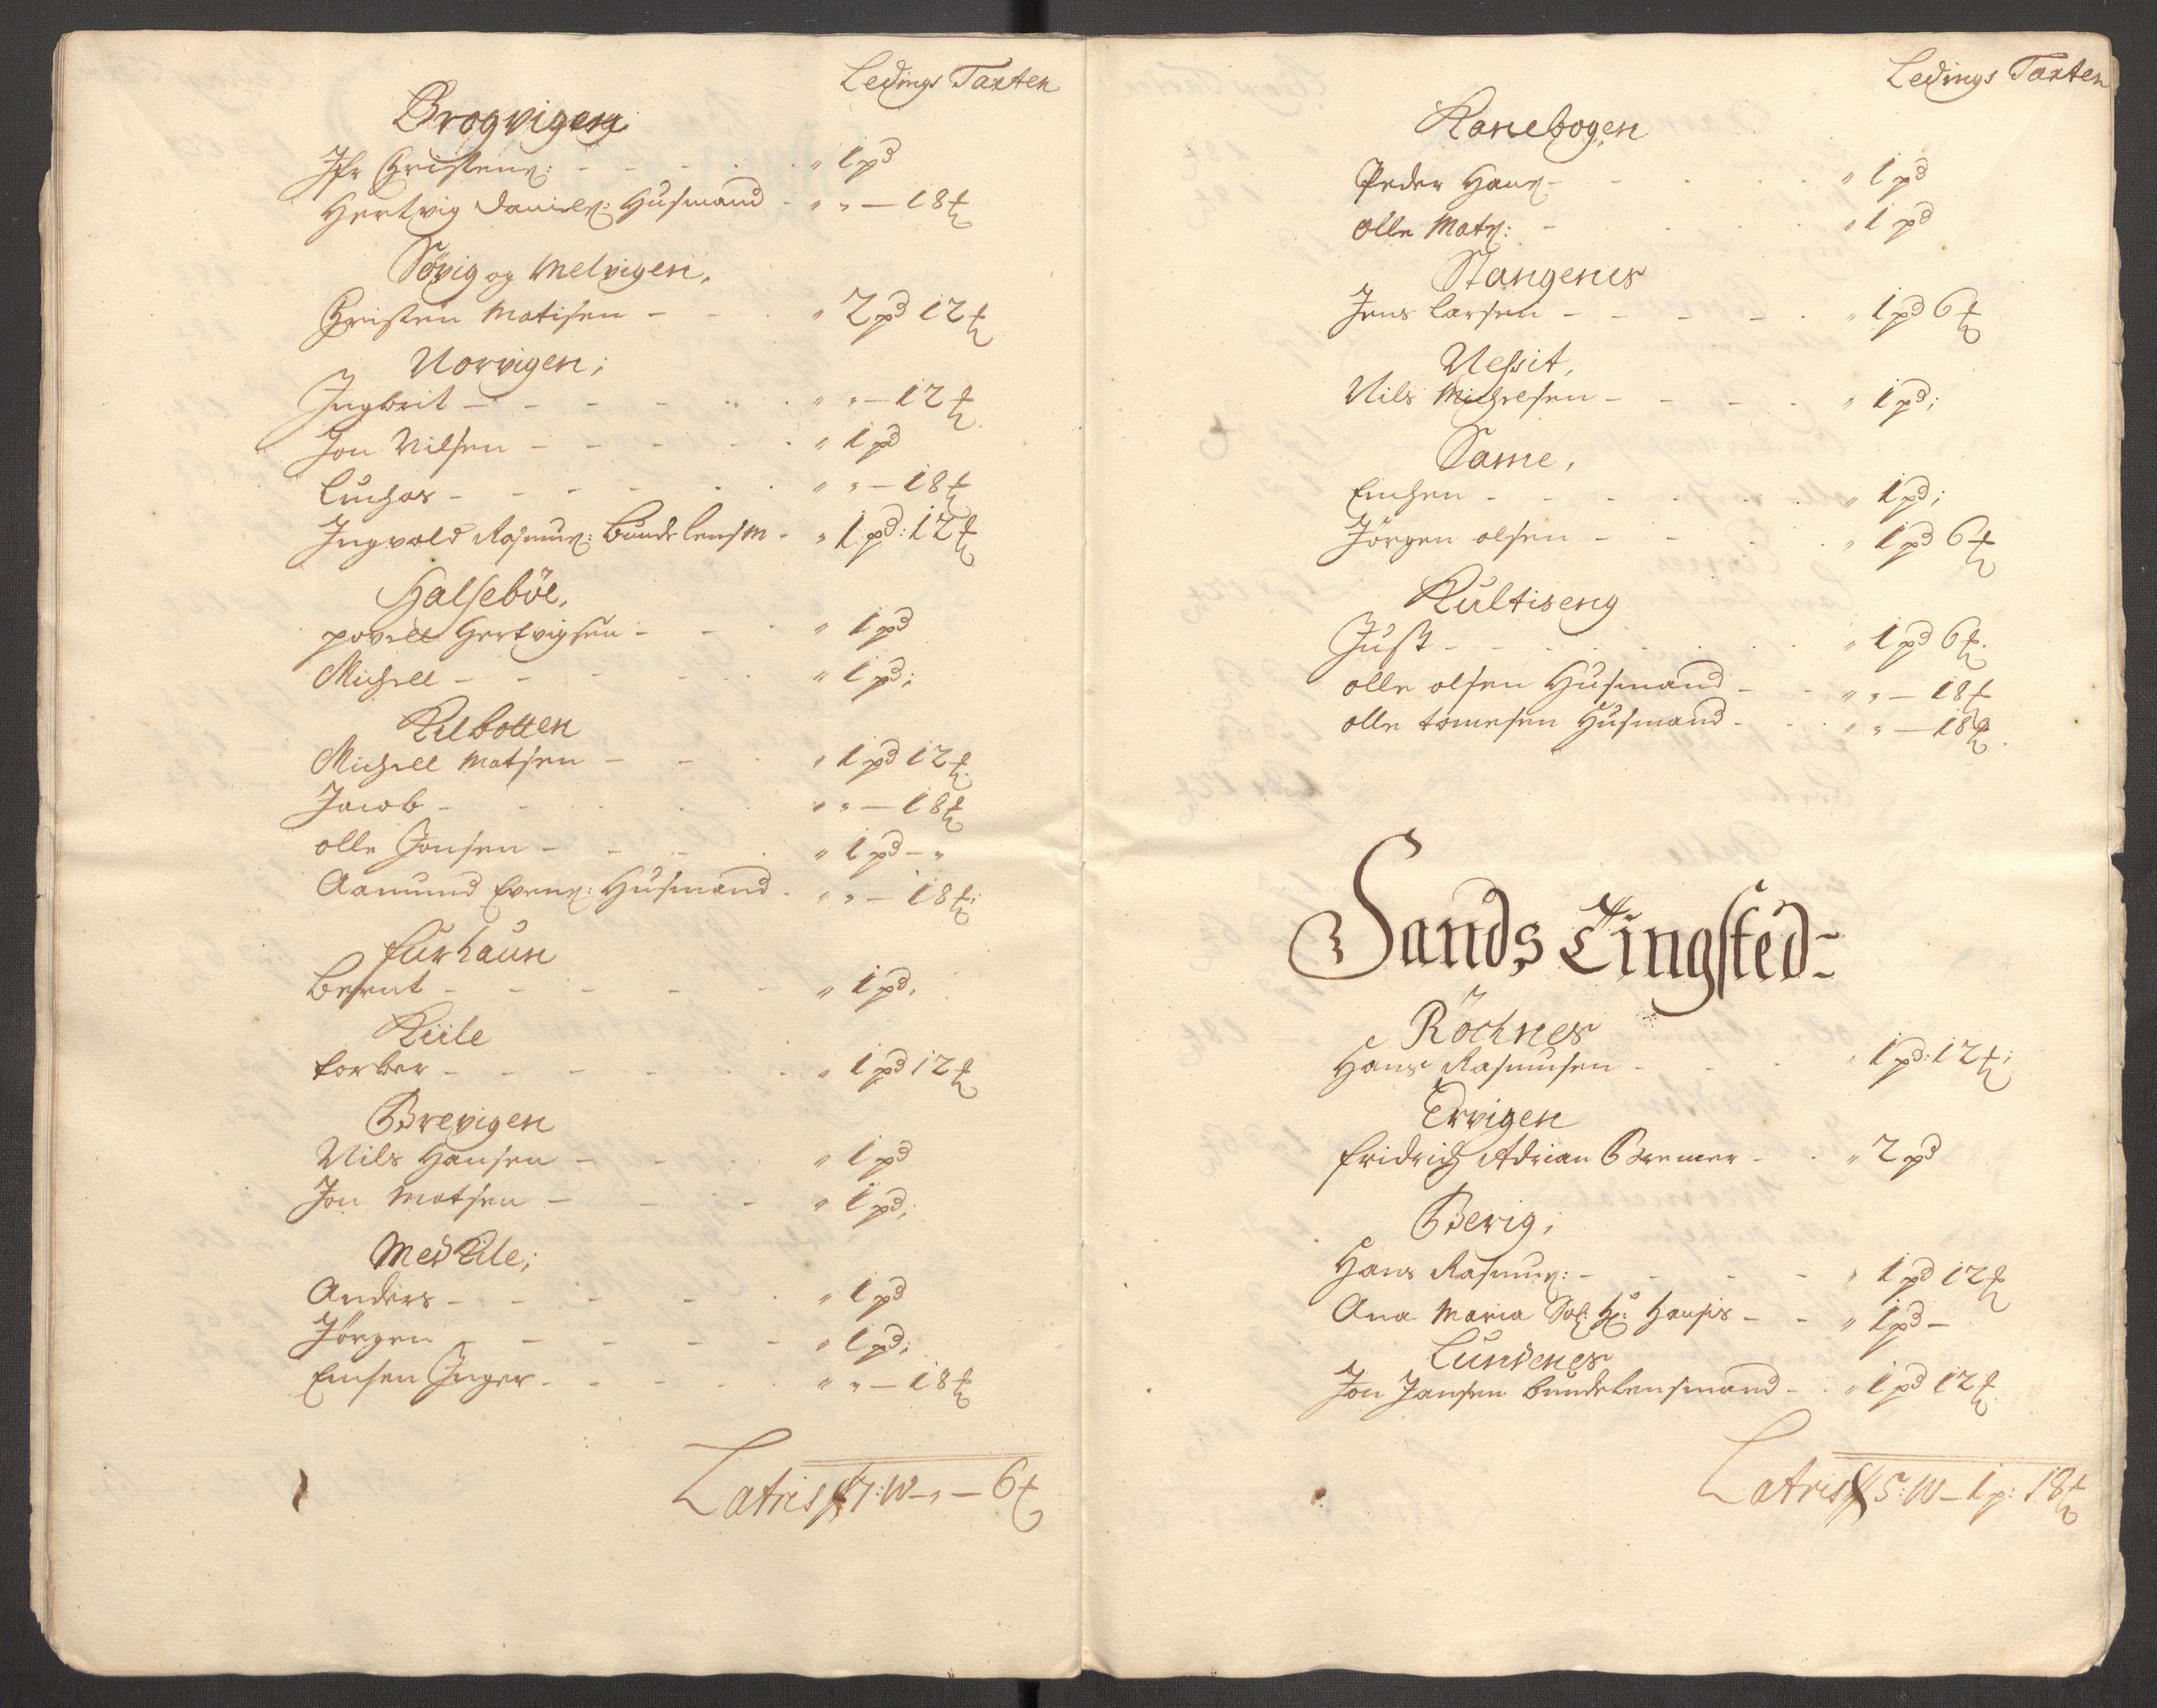 Ledings Taxten
Brogvigen
Jfr Christens: - - - - " 1 pd
Hertvig Daniels: Husmand - " " — 18 ℔
Søvig og Melvigen,
Christen Matisen - - - " 2 pd 12 ℔
Norvigen;
Ingbrit - - - - - " " — 12 ℔
Jon Nilsen - - - - - " 1 pd
Luchas - - - - - " " — 18 ℔
Ingvald Rasmus: bunde lensm - " 1 pd: 12 ℔
Halseböe,
povell Hertvigsen - - - " 1 pd
Michell - - - - " 1 pd;
Kilbotten
Michell Matsen - - - " 1 pd 12 ℔
Jacob - - - - " " — 18 ℔
olle Jonsen - - - - " 1 pd - "
Aamund Evens: Husmand - " " — 18 ℔;
furhaun
Bernt - - - - - " 1 pd,
Kiile
torber - - - - - " 1 pd 12 ℔
Brevigen
Nils Hansen - - - " 1 pd
Jon Matsen - - - " 1 pd;
Med Kile;
Anders - - - - - " 1 pd
Jörgen - - - - - " 1 pd;
Enchen Inger - - - - " " — 18 ℔
Latris 7: W - " — 6 ℔
Ledings Taxten
Kanebogen
Peder Hans - - - - " 1 pd
olle Mats: - - - - " 1 pd
Stangenes
Jens Larsen - - - - - " 1 pd 6 ℔
Nessit,
Nils Michelsen - - - - " 1 pd;
Same,
Enchen - - - - - " 1 pd;
Jörgen olsen - - - - " 1 pd 6 ℔
Kultiseng
Just - - - - - " 1 pd 6 ℔.
olle olsen Husmand - - " " — 18 ℔
olle tomesen Husmand - - " " — 18 ℔.
Sands Tingsted-
Röchnes
Hans Rasmusen - - - " 1 pd: 12 ℔;
Ervigen
fridrich Adrian Bremer - - " 2 pd
Berig;
Hans Rasmus: - - - - " 1 pd 12 ℔
Ana Maria Sal: Hr: Hansis - - " 1 pd -
Lundenes
Jon Jansen bundelensmand - - " 1 pd 12 ℔
Latris 5: W - 1 p: 18 ℔